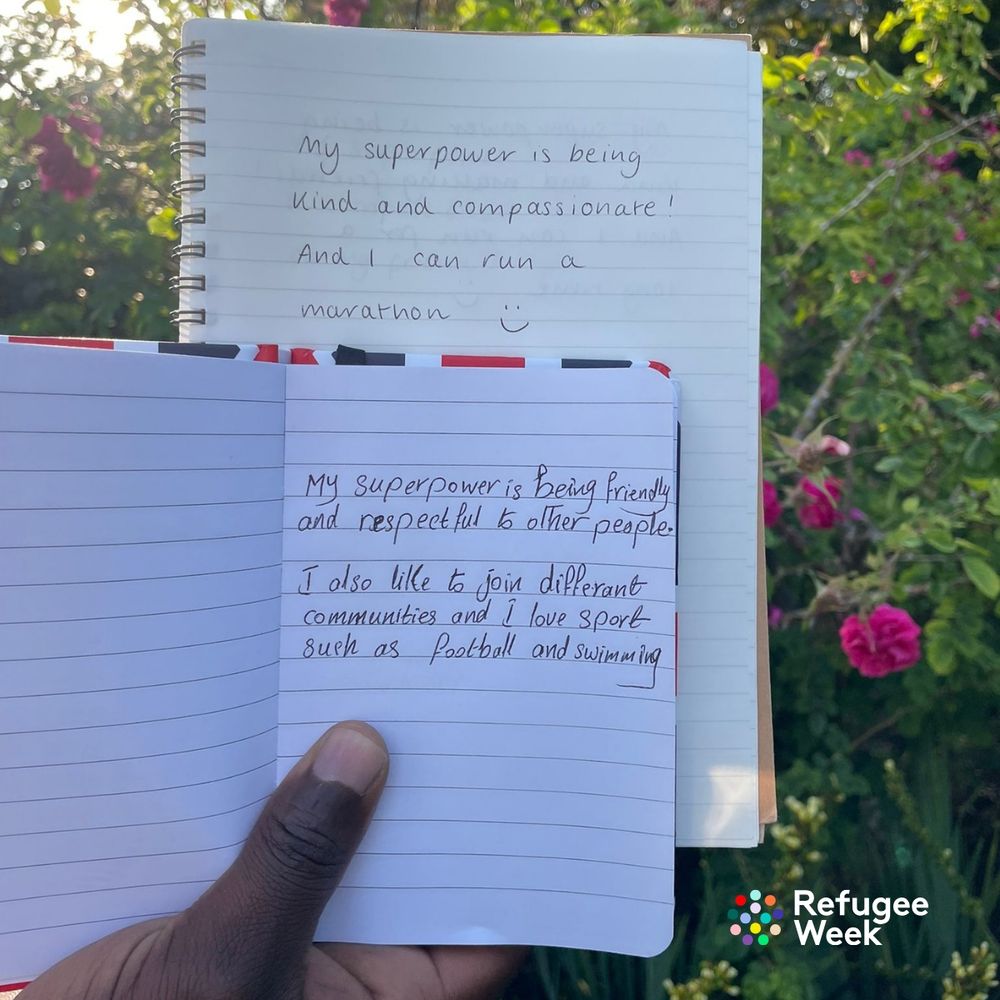 My superpower is being
kind and compassionate!
And I can run a
marathon :)
My superpower is being friendly
and respectful to other people.
I also like to join differant
communities and I love sport
such as football and swimming
Refugee
Week